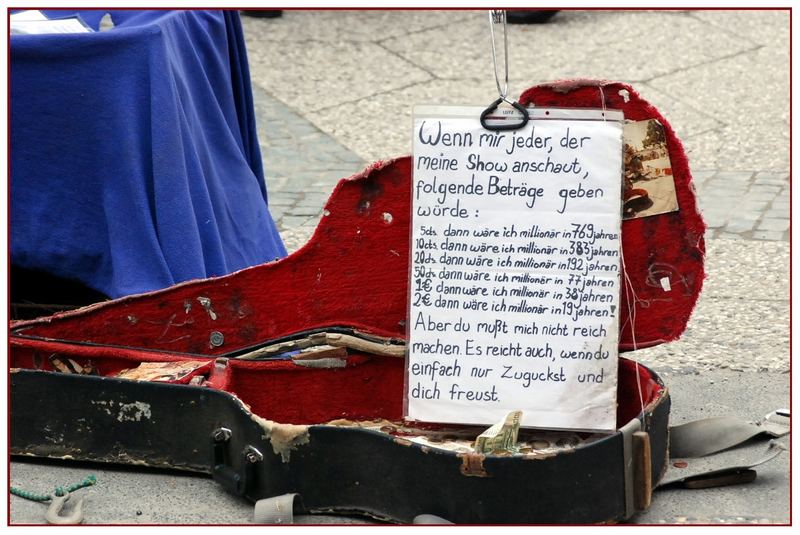 Wenn mir jeder, der
meine Show anschaut,
folgende Beträge geben
würde:
5cts. dann wäre ich millionär in 769 jahren
10cts. dann wäre ich millionär in 383 jahren
20cts. dann wäre ich millionär in 192 jahren
50cts. dann wäre ich millionär in 77 jahren
1€ dann wäre ich millionär in 38 jahren
2€ dann wäre ich millionär in 19 jahren!
Aber du mußt mich nicht reich
machen. Es reicht auch, wenn du
einfach nur Zuguckst und
dich freust.